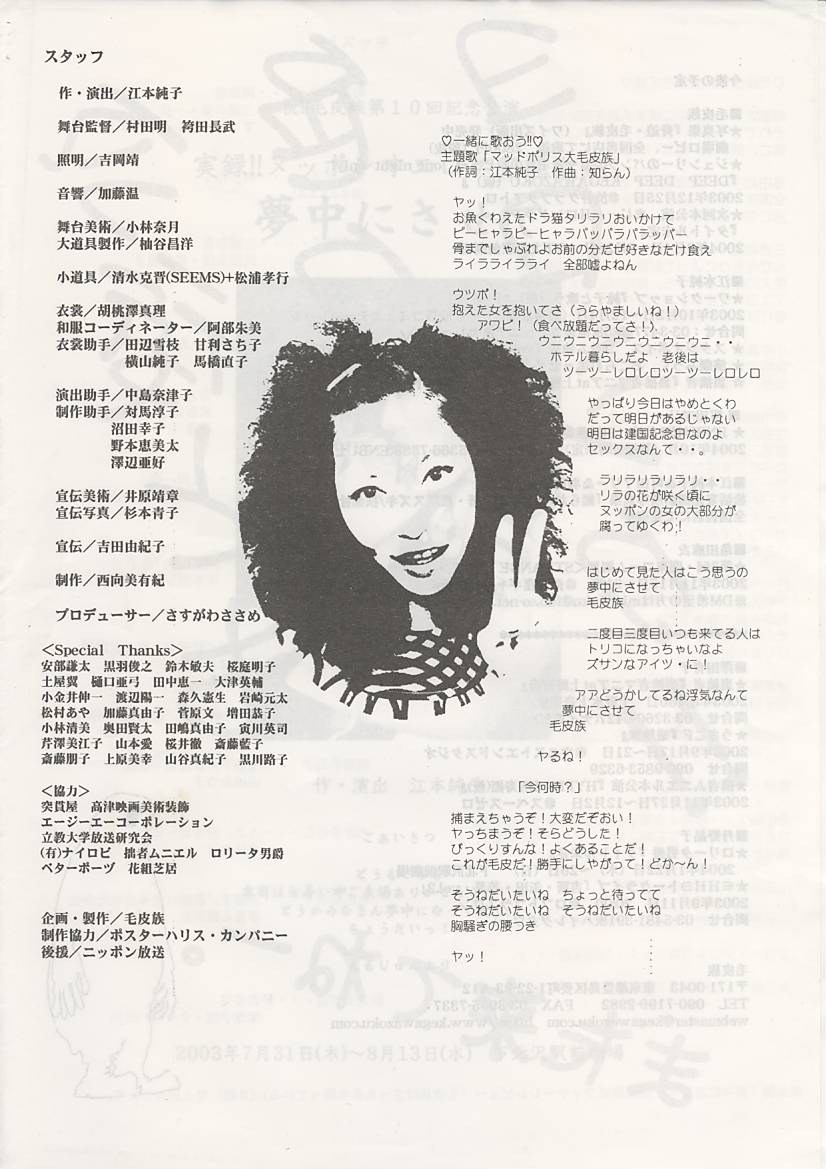 スタッフ
作・演出／江本純子
舞台監督／村田明　袴田長武
照明／吉岡靖
音響／加藤温
舞台美術／小林奈月
大道具製作／柚谷昌洋
小道具／清水克晋(SEEMS)+松浦孝行
衣裳／胡桃澤真理
和服コーディネーター／阿部朱美
衣裳助手／田辺雪枝　甘利さち子
横山純子　馬橋直子
演出助手／中島奈津子
制作助手／対馬淳子
沼田幸子
野本恵美太
澤辺亜好
宣伝美術／井原靖章
宣伝写真／杉本青子
宣伝／吉田由紀子
制作／西向美有紀
プロデューサー／さすがわささめ
＜Special　Thanks＞
安部謙太　黒羽俊之　鈴木敏夫　桜庭明子
土屋翼　樋口亜弓　田中恵一　大津英輔
小金井伸一　渡辺陽一　森久憲生　岩崎元太
松村あや　加藤真由子　菅原文　増田恭子
小林清美　奥田賢太　田嶋真由子　寅川英司
芹澤美江子　山本愛　桜井徹　斎藤藍子
斎藤朋子　上原美幸　山谷真紀子　黒川路子
＜協力＞
突貫屋　高津映画美術装飾
エージーエーコーポレーション
立教大学放送研究会
(有)ナイロビ　拙者ムニエル　ロリータ男爵
ベターポーヅ　花組芝居
企画・製作／毛皮族
制作協力／ポスターハリス・カンパニー
後援／ニッポン放送
♡一緒に歌おう!!♡
主題歌「マッドポリス大毛皮族」
（作詞：江本純子　作曲：知らん）
ヤッ！
お魚くわえたドラ猫タリラリおいかけて
ピーヒャラピーヒャラパッパラパラッパー
骨までしゃぶれよお前の分だぜ好きなだけ食え
ライララライラライ　全部嘘よねん
ウツボ！
抱えた女を抱いてさ（うらやましいね！）
アワビ！（食べ放題だってさ！）
ウニウニウニウニウニウニウニ・・
ホテル暮らしだよ　老後は
ツーツーレロレロツーツーレロレロ
やっぱり今日はやめとくわ
だって明日があるじゃない
明日は建国記念日なのよ
セックスなんて・・。
ラリラリラリラリ・・
リラの花が咲く頃に
ヌッポンの女の大部分が
腐ってゆくわ！
はじめて見た人はこう思うの
夢中にさせて
毛皮族
二度目三度目いつも来てる人は
トリコになっちゃいなよ
ズサンなアイツ・に！
アアどうかしてるね浮気なんて
夢中にさせて
毛皮族
ヤるね！
「今何時？」
捕まえちゃうぞ！大変だぞおい！
ヤっちまうぞ！そらどうした！
びっくりすんな！よくあることだ！
これが毛皮だ！勝手にしやがって！どか〜ん！
そうねだいたいね　ちょっと待ってて
そうねだいたいね　そうねだいたいね
胸騒ぎの腰つき
ヤッ！